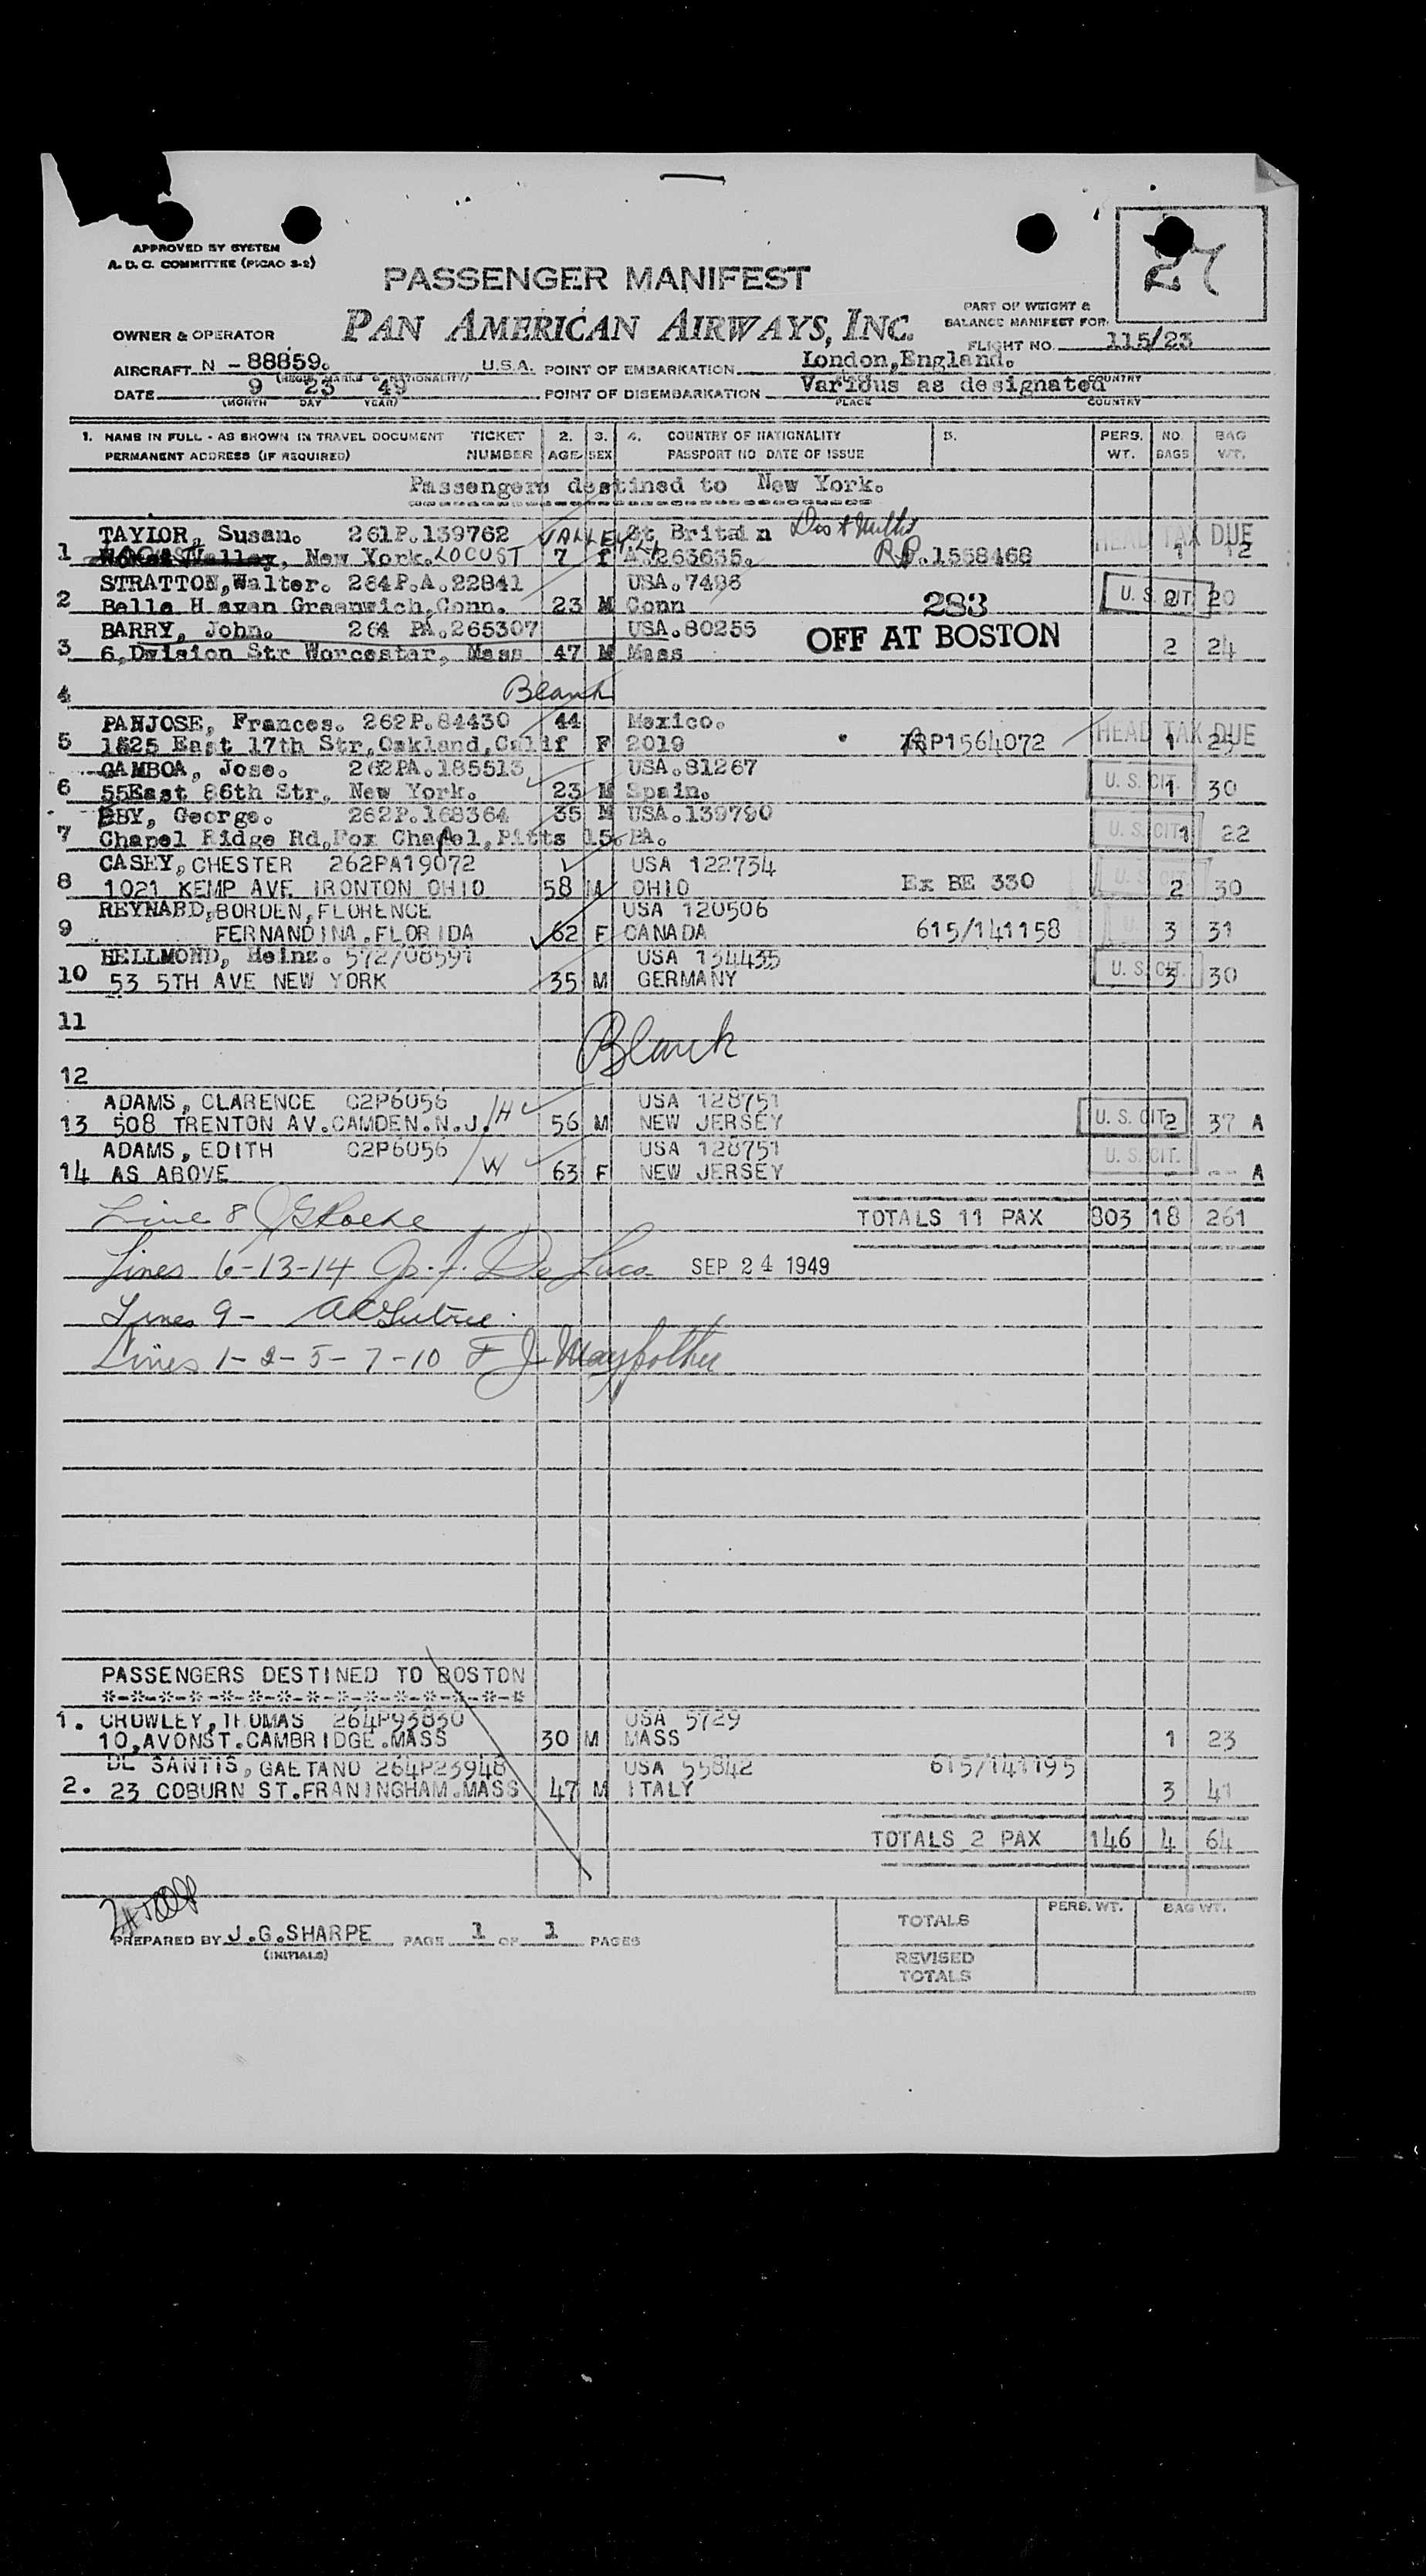 27
APPROVED BY SYSTEM
A. D. C. COMMITTEE (PICAO 3-2)
PASSENGER MANIFEST
PART OF WEIGHT &
BALANCE MANIFEST FOR
OWNER & OPERATOR PAN AMERICAN AIRWAYS, INC.
FLIGHT NO. 115/23
AIRCRAFT N - 88859. U.S.A. POINT OF EMBARKATION London,England.
(REGIS. MARKS & NATIONALITY)
DATE 9 23 49 POINT OF DISEMBARKATION Various as designated
(MONTH DAY YEAR) PLACE COUNTRY
1. NAME IN FULL - AS SHOWN IN TRAVEL DOCUMENT TICKET 2. 3. 4. COUNTRY OF NATIONALITY 5. PERS. NO. BAG
PERMANENT ADDRESS (IF REQUIRED) NUMBER AGE SEX PASSPORT NO DATE OF ISSUE WT. BAGS WT.
Passengers destined to New York.
TAYLOR, Susan. 261P.139762 VALLEY Gt Britain HEAD TAX DUE
1 Valley, New York. LOCUST 7 f A.263635. RP.1558468 1 12
STRATTON,Walter. 264P.A.22841 USA.7496 U. S. CIT.
2 Belle H aven Greenwich,Conn. 23 M Conn 283 2 20
BARRY, John. 264 PA.265307 USA.80255 OFF AT BOSTON
3 6,Dvision Str Worcester, Mass 47 M Mass 2 24
4 Blank
PANJOSE, Frances. 262P.84430 44 Mexico. HEAD TAX DUE
5 1825 East 17th Str,Oakland,Calif F 2019 RP1564072 1 25
GAMBOA, Jose. 262PA.185513 USA.81267 U. S. CIT.
6 55East 86th Str, New York. 23 M Spain. 1 30
EBY, George. 262P.168364 35 M USA.139790 U. S. CIT.
7 Chapel Ridge Rd,Fox Chapel,Pitts 15.PA. 1 22
CASEY, CHESTER 262PA19072 USA 122734 U. S. CIT.
8 1021 KEMP AVE IRONTON OHIO 58 M OHIO Ex BE 330 2 30
REYNARD,BORDEN,FLORENCE USA 120506
9 FERNANDINA.FLORIDA 62 F CANADA 615/141158 3 31
HELLMOND, Heinz. 572/08591 USA 134435 U. S. CIT.
10 53 5TH AVE NEW YORK 35 M GERMANY 3 30
11
Blank
12
ADAMS, CLARENCE C2P6056 /H USA 128751 U. S. CIT.
13 508 TRENTON AV.CAMDEN.N.J. 56 M NEW JERSEY 2 37 A
ADAMS, EDITH C2P6056 /W USA 128751 U. S. CIT.
14 AS ABOVE 63 F NEW JERSEY - -- A
Line 8 TOTALS 11 PAX 803 18 261
Lines 6-13-14 De Luca SEP 24 1949
Lines 9-
Lines 1-2-5-7-10 F J
PASSENGERS DESTINED TO BOSTON
*-*-*-*-*-*-*-*-*-*-*-*-*-*-*
1. CROWLEY,THOMAS 264P93830 USA 5729
10,AVONST.CAMBRIDGE.MASS 30 M MASS 1 23
DE SANTIS, GAETANO 264P23948 USA 55842 615/141195
2. 23 COBURN ST.FRANINGHAM.MASS 47 M ITALY 3 41
TOTALS 2 PAX 146 4 64
PERS. WT. BAG WT.
TOTALS
PREPARED BY J.G.SHARPE PAGE 1 OF 1 PAGES
(INITIALS)
REVISED
TOTALS